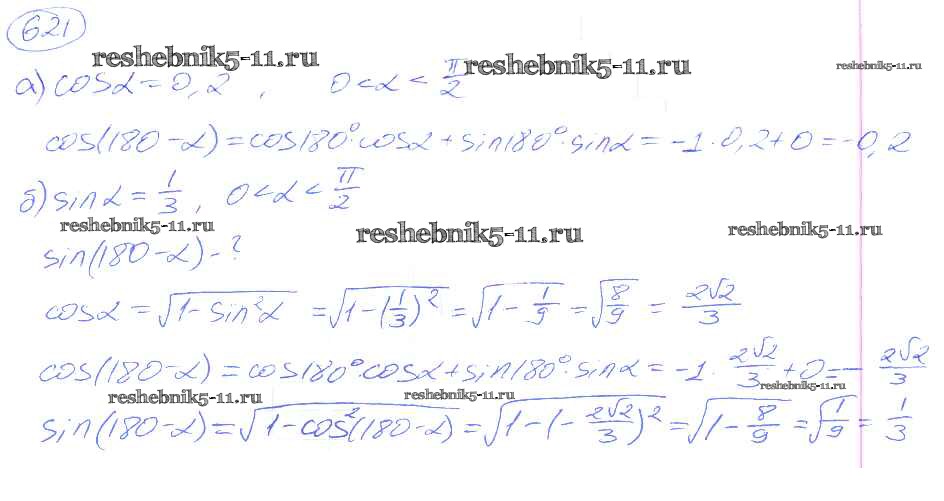 621
reshebnik5-11.ru
reshebnik5-11.ru
reshebnik5-11.ru
а) cosα = 0,2 , 0 < α < π/2
cos(180 - α) = cos180° · cosα + sin180° · sinα = -1 · 0,2 + 0 = -0,2
б) sinα = 1/3 , 0 < α < π/2
reshebnik5-11.ru
reshebnik5-11.ru
reshebnik5-11.ru
sin(180 - α) - ?
cosα = √(1 - sin²α) = √(1 - (1/3)²) = √(1 - 1/9) = √(8/9) = 2√2/3
cos(180 - α) = cos180° · cosα + sin180° · sinα = -1 · 2√2/3 + 0 = - 2√2/3
reshebnik5-11.ru
reshebnik5-11.ru
reshebnik5-11.ru
sin(180 - α) = √(1 - cos²(180 - α)) = √(1 - (- 2√2/3)²) = √(1 - 8/9) = √(1/9) = 1/3